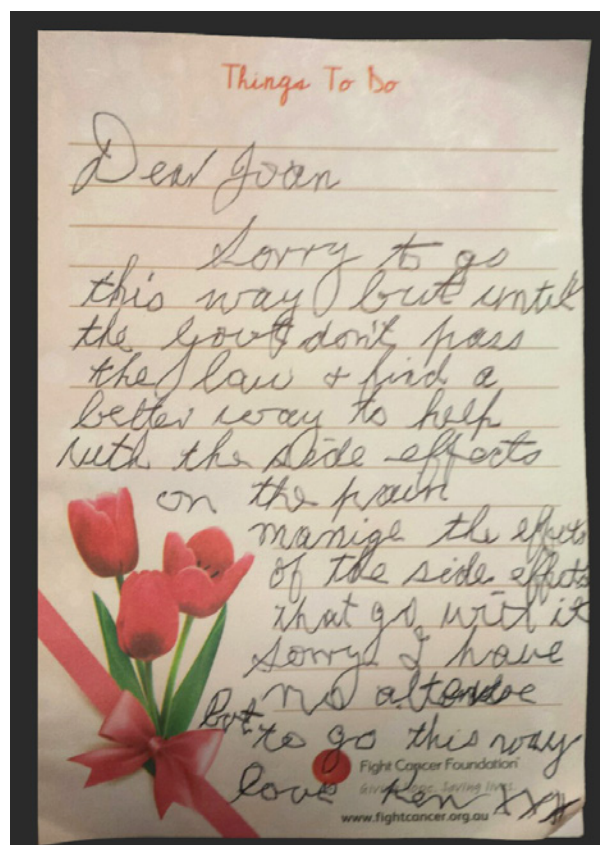 Things To Do
Dear Joan
Sorry to go
this way but until
the Govt don't pass
the law + find a
better way to help
with the side effects
on the pain
manige the effects
of the side effects
that go with it
Sorry I have
no
but to go this way
Fight Cancer Foundation
Giving hope. Saving lives.
love Ken xxx
www.fightcancer.org.au